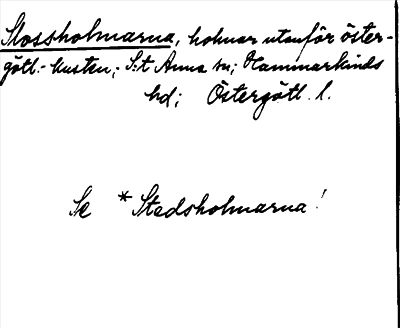 Slossholmarna, holmar utanför öster-
götl.-kusten; S:t Anna sn; Hammarkinds
hd; Östergötl. l.
Se *Stedsholmarna!